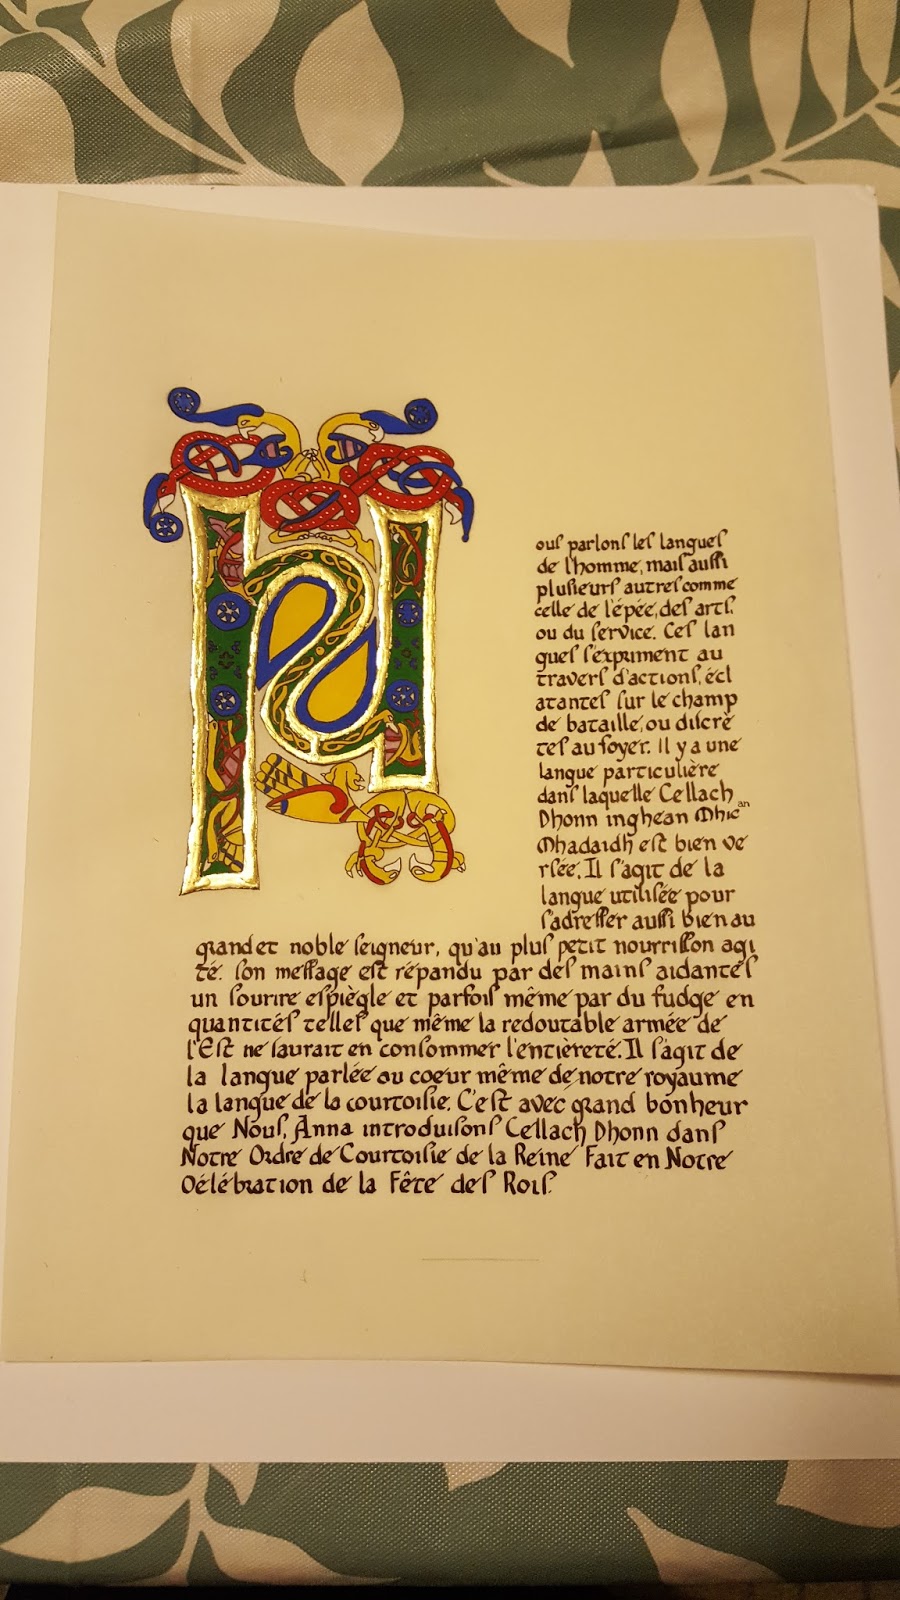 N
ous parlons les langues
de l'homme, mais aussi
plusieurs autres comme
celle de l'épée, des arts,
ou du service. Ces lan
gues s'expriment au
travers d'actions, écl
atantes sur le champ
de bataille, ou discrè
tes au foyer. Il y a une
langue particulière
dans laquelle Cellach
Dhonn inghean Mhic an
Mhadaidh est bien ve
rsée. Il s'agit de la
langue utilisée pour
s'adresser aussi bien au
grand et noble seigneur, qu'au plus petit nourrisson agi
té. Son message est répandu par des mains aidantes
un sourire espiègle et parfois même par du fudge en
quantités telles que même la redoutable armée de
l'Est ne saurait en consommer l'entièreté. Il s'agit de
la langue parlée au coeur même de notre royaume
la langue de la courtoisie. C'est avec grand bonheur
que Nous, Anna introduisons Cellach Dhonn dans
Notre Ordre de Courtoisie de la Reine Fait en Notre
Célébration de la Fête des Rois.